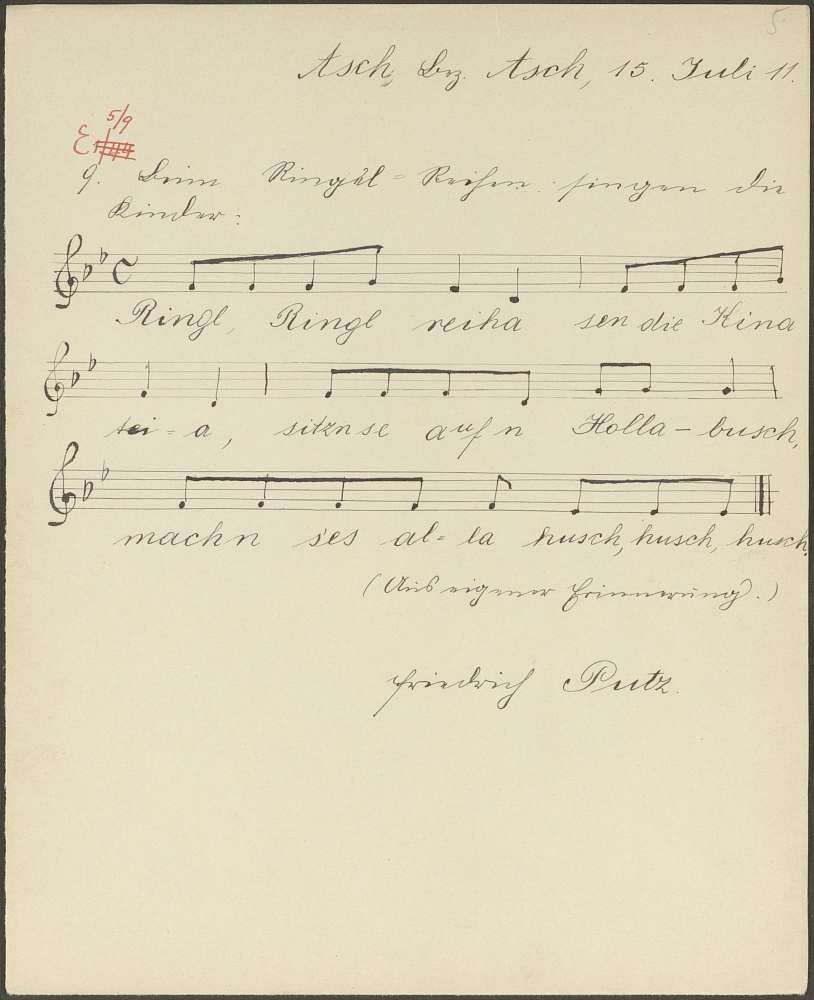 5.
Asch, Bz. Asch, 15. Juli 11.
5/9
9. Beim Ringäl=Reihen singen die
Kinder:
Ringl, Ringl reiha sen die Kina
- a, sitzn se aufn Holla - busch,
machn s'es al= la husch, husch, husch.
(Aus eigener Erinnerung.)
Friedrich Putz.